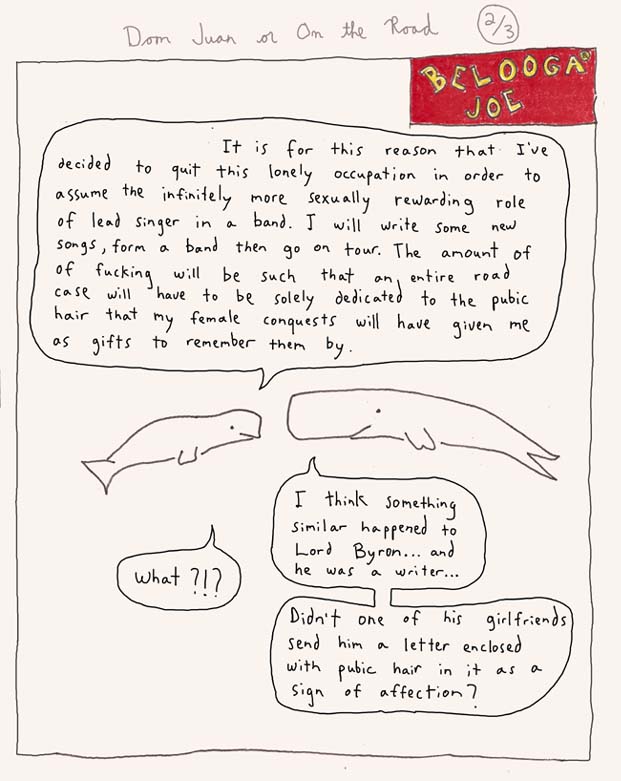 Dom Juan or On the Road 2/3
BELOOGA
JOE
It is for this reason that I've
decided to quit this lonely occupation in order to
assume the infinitely more sexually rewarding role
of lead singer in a band. I will write some new
songs, form a band then go on tour. The amount of
of fucking will be such that an entire road
case will have to be solely dedicated to the pubic
hair that my female conquests will have given me
as gifts to remember them by.
I think something
similar happened to
Lord Byron... and
he was a writer...
What ?!?
Didn't one of his girlfriends
send him a letter enclosed
with pubic hair in it as a
sign of affection?